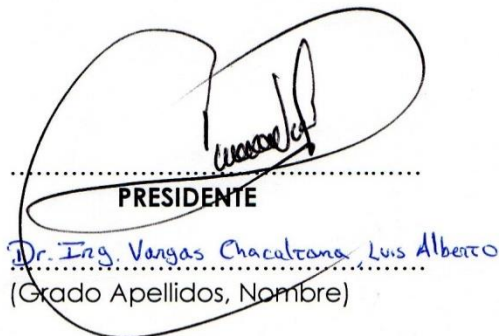 PRESIDENTE
Dr. Ing. Vargas Chacaltana, Luis Alberto
(Grado Apellidos, Nombre)